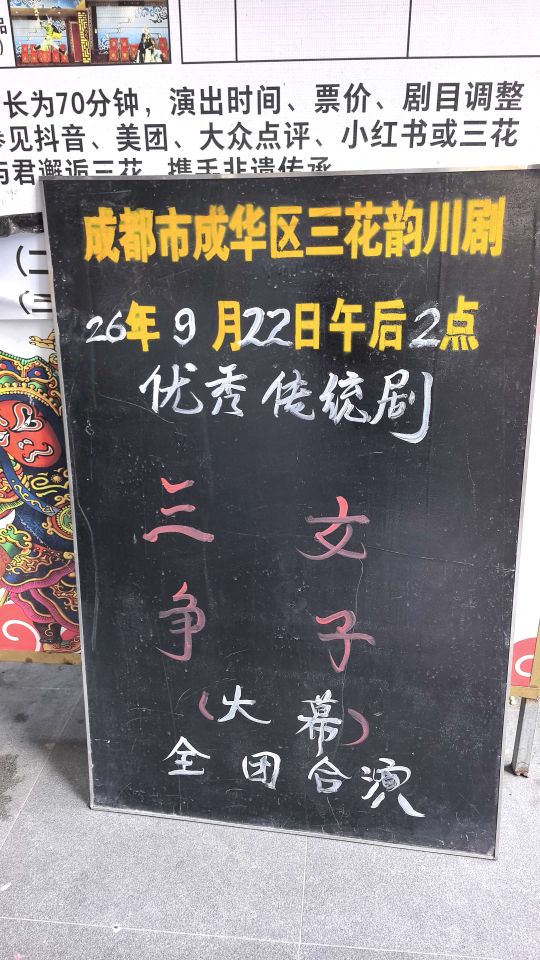 长为70分钟，演出时间、票价、剧目调整
参见抖音、美团、大众点评、小红书或三花
与君邂逅三花 携手非遗传承
成都市成华区三花韵川剧
26年9月22日午后2点
优秀传统剧
三 文
争 子
（大幕）
全团合演